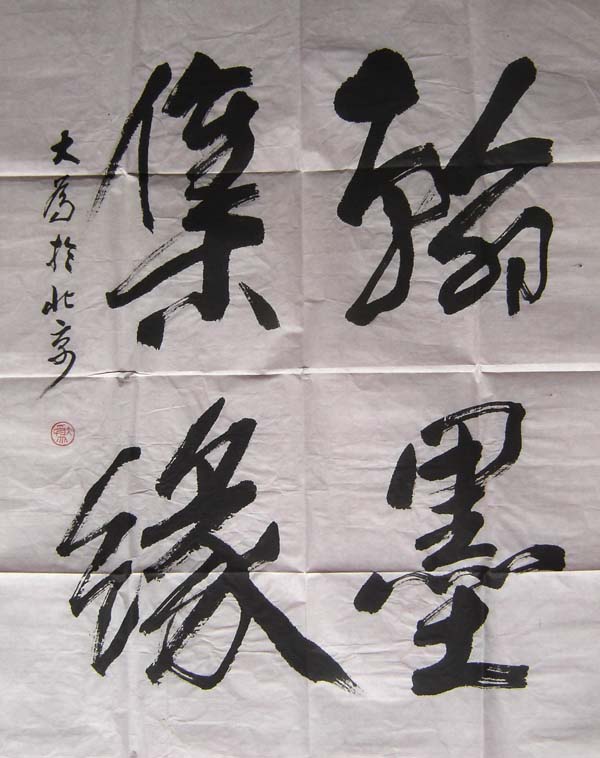 翰墨
集缘
大為於北京